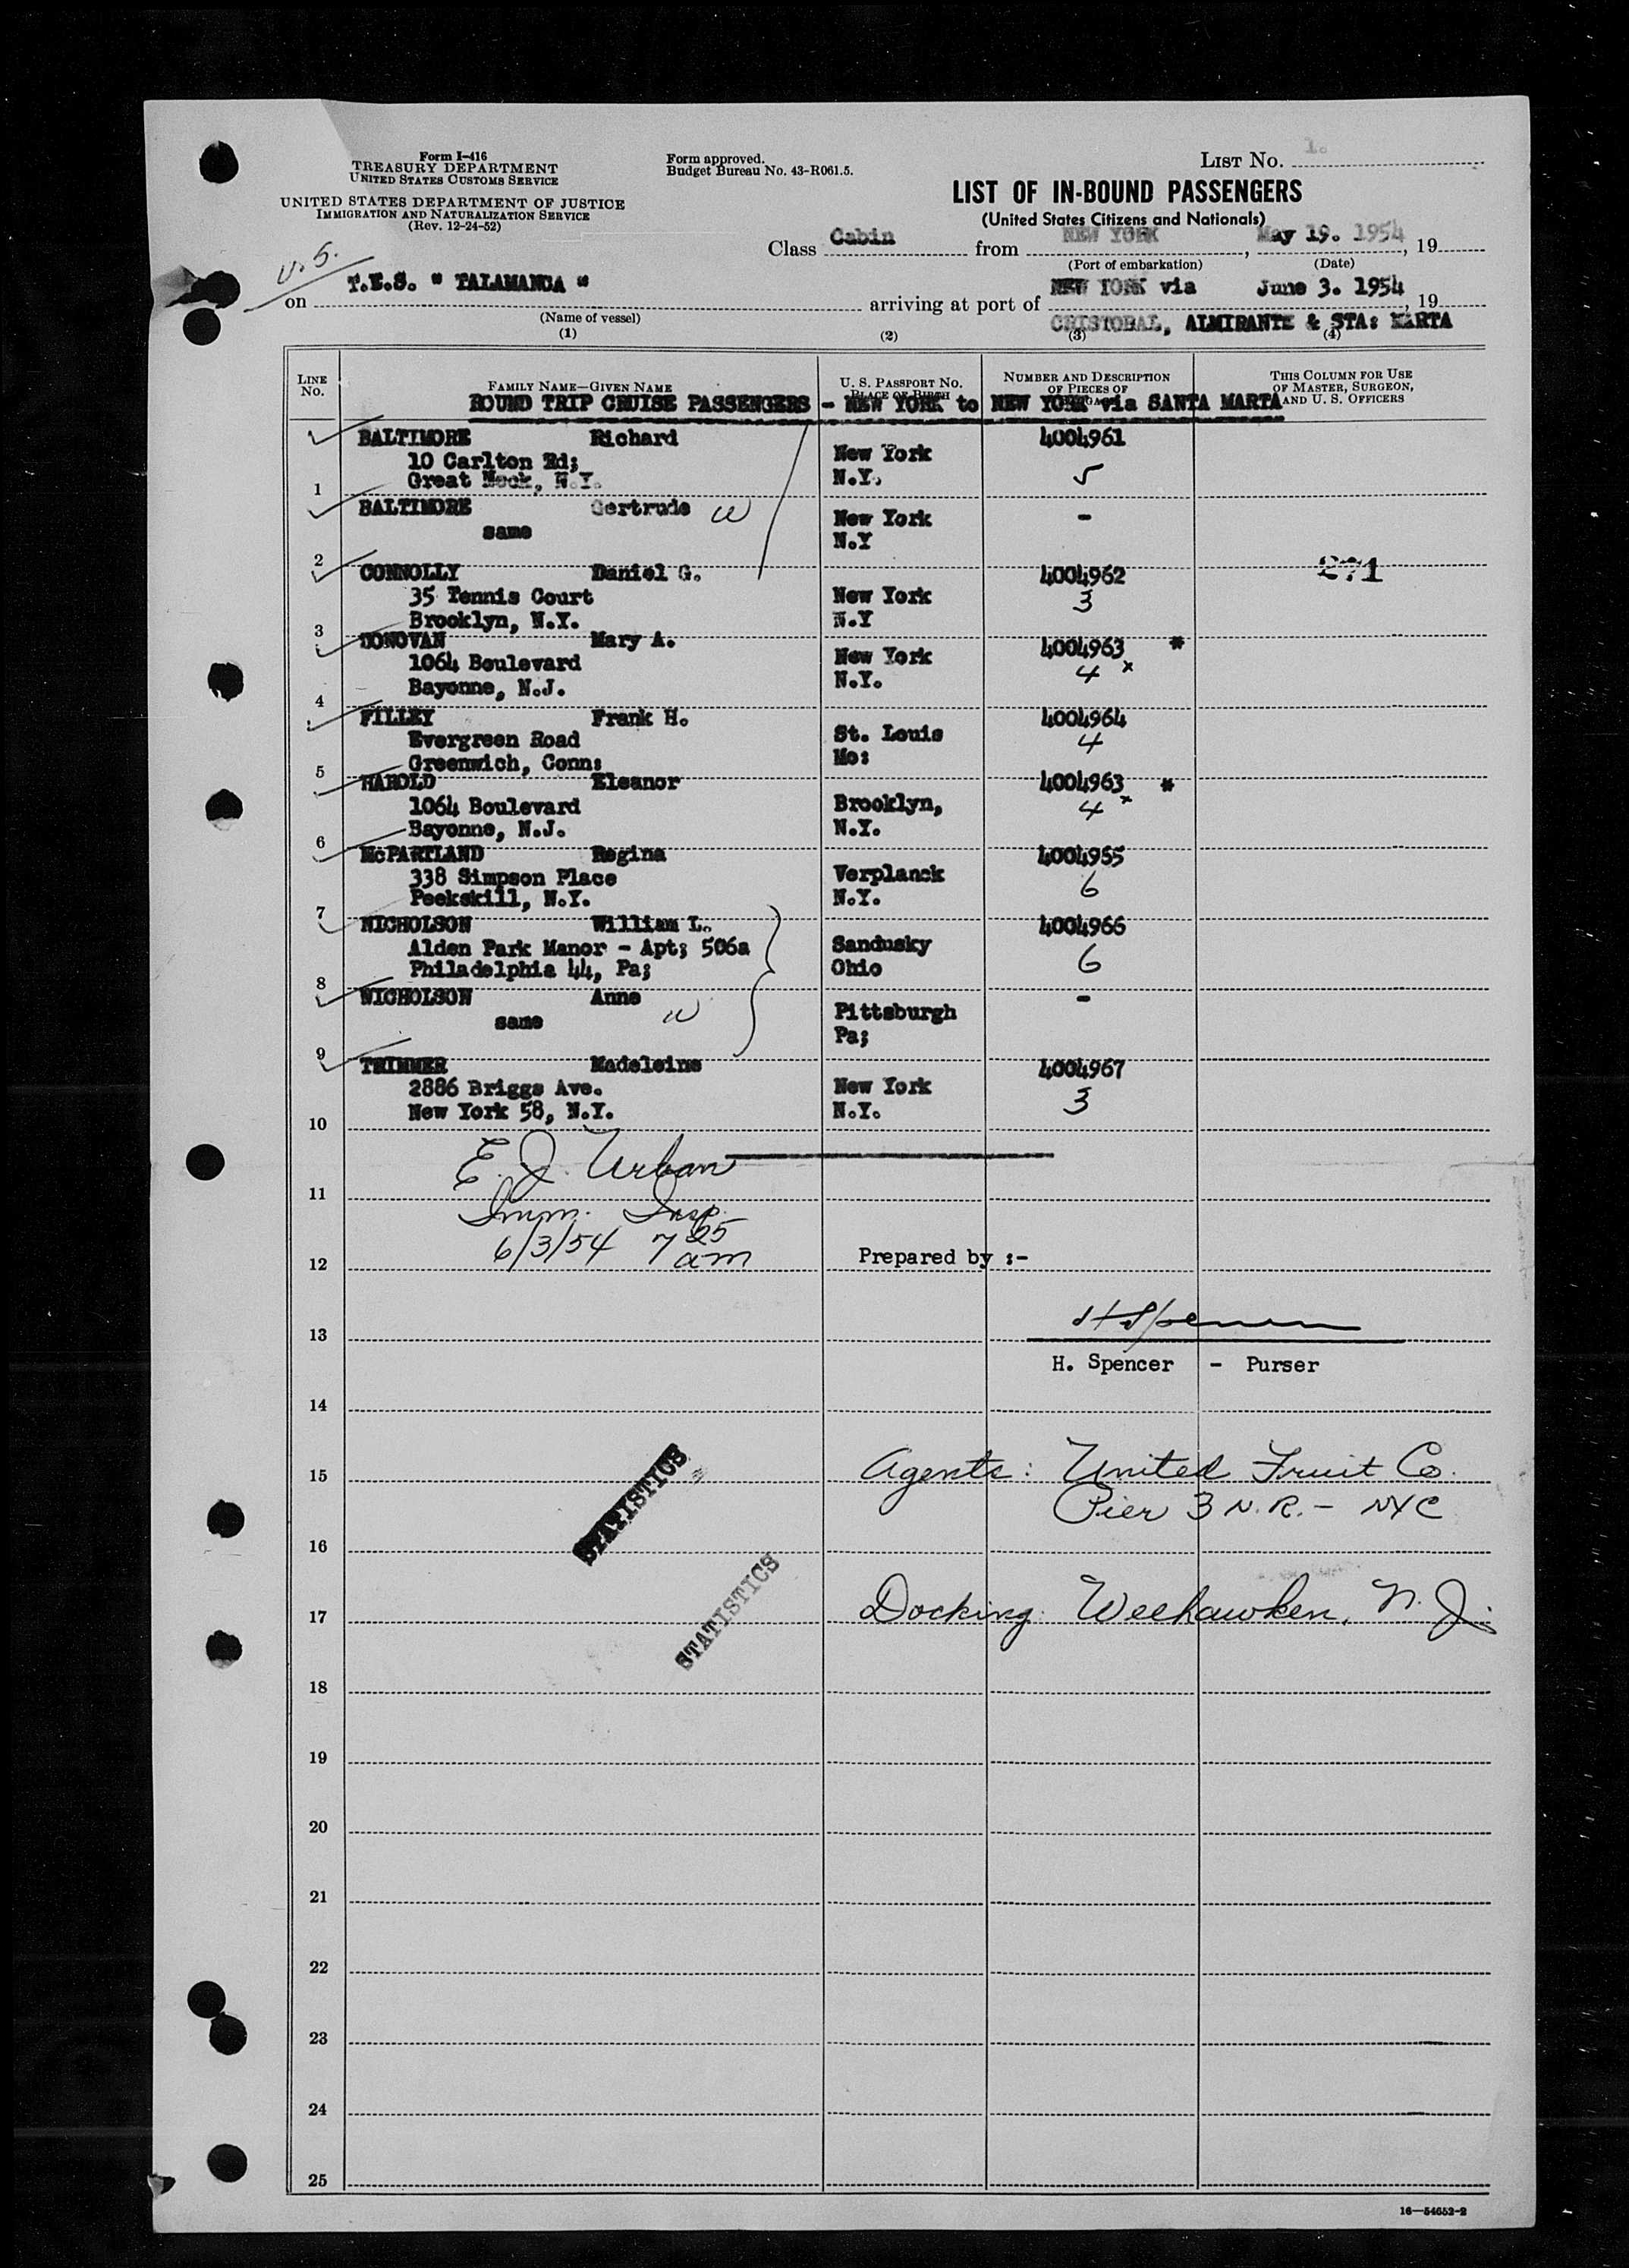 Form I-416
TREASURY DEPARTMENT
UNITED STATES CUSTOMS SERVICE
UNITED STATES DEPARTMENT OF JUSTICE
IMMIGRATION AND NATURALIZATION SERVICE
(Rev. 12-24-52)
Form approved.
Budget Bureau No. 43-R061.5.
LIST No. 1.
LIST OF IN-BOUND PASSENGERS
(United States Citizens and Nationals)
Class Cabin from NEW YORK, May 19. 1954, 19
(Port of embarkation) (Date)
U.S.
on T.E.S. " TALAMANCA " arriving at port of NEW YORK via June 3. 1954, 19
(Name of vessel) CRISTOBAL, ALMIRANTE & STA: MARTA
(1) (2) (3) (4)
LINE No. FAMILY NAME—GIVEN NAME U. S. PASSPORT No. PLACE OF BIRTH NUMBER AND DESCRIPTION OF PIECES OF THIS COLUMN FOR USE OF MASTER, SURGEON, AND U. S. OFFICERS
ROUND TRIP CRUISE PASSENGERS - NEW YORK to NEW YORK via SANTA MARTA
BALTIMORE Richard 4004961
10 Carlton Rd; New York
1 Great Neck, N.Y. N.Y. 5
BALTIMORE Gertrude w New York -
same N.Y
2
CONNOLLY Daniel G. 4004962 271
35 Tennis Court New York 3
3 Brooklyn, N.Y. N.Y
DONOVAN Mary A. 4004963 *
1064 Boulevard New York 4 x
4 Bayonne, N.J. N.Y.
FILLEY Frank H. 4004964
Evergreen Road St. Louis 4
5 Greenwich, Conn: Mo:
HAROLD Eleanor 4004963 *
1064 Boulevard Brooklyn, 4 x
6 Bayonne, N.J. N.Y.
McPARTLAND Regina 4004965
338 Simpson Place Verplanck 6
7 Peekskill, N.Y. N.Y.
NICHOLSON William L. 4004966
Alden Park Manor - Apt; 506a Sandusky 6
8 Philadelphia 44, Pa; Ohio
NICHOLSON Anne w Pittsburgh -
same Pa;
9
TRIMMER Madeleine 4004967
2886 Briggs Ave. New York 3
10 New York 58, N.Y. N.Y.
E. J. Urban
11
Imm. Insp.
12 6/3/54 7 25 am Prepared by :-
13 H Spencer
H. Spencer - Purser
14
15 Agents: United Fruit Co.
Pier 3 N.R. - NYC
16
STATISTICS
17 Docking: Weehawken, N.J.
STATISTICS
18
19
20
21
22
23
24
25
16—54652-2